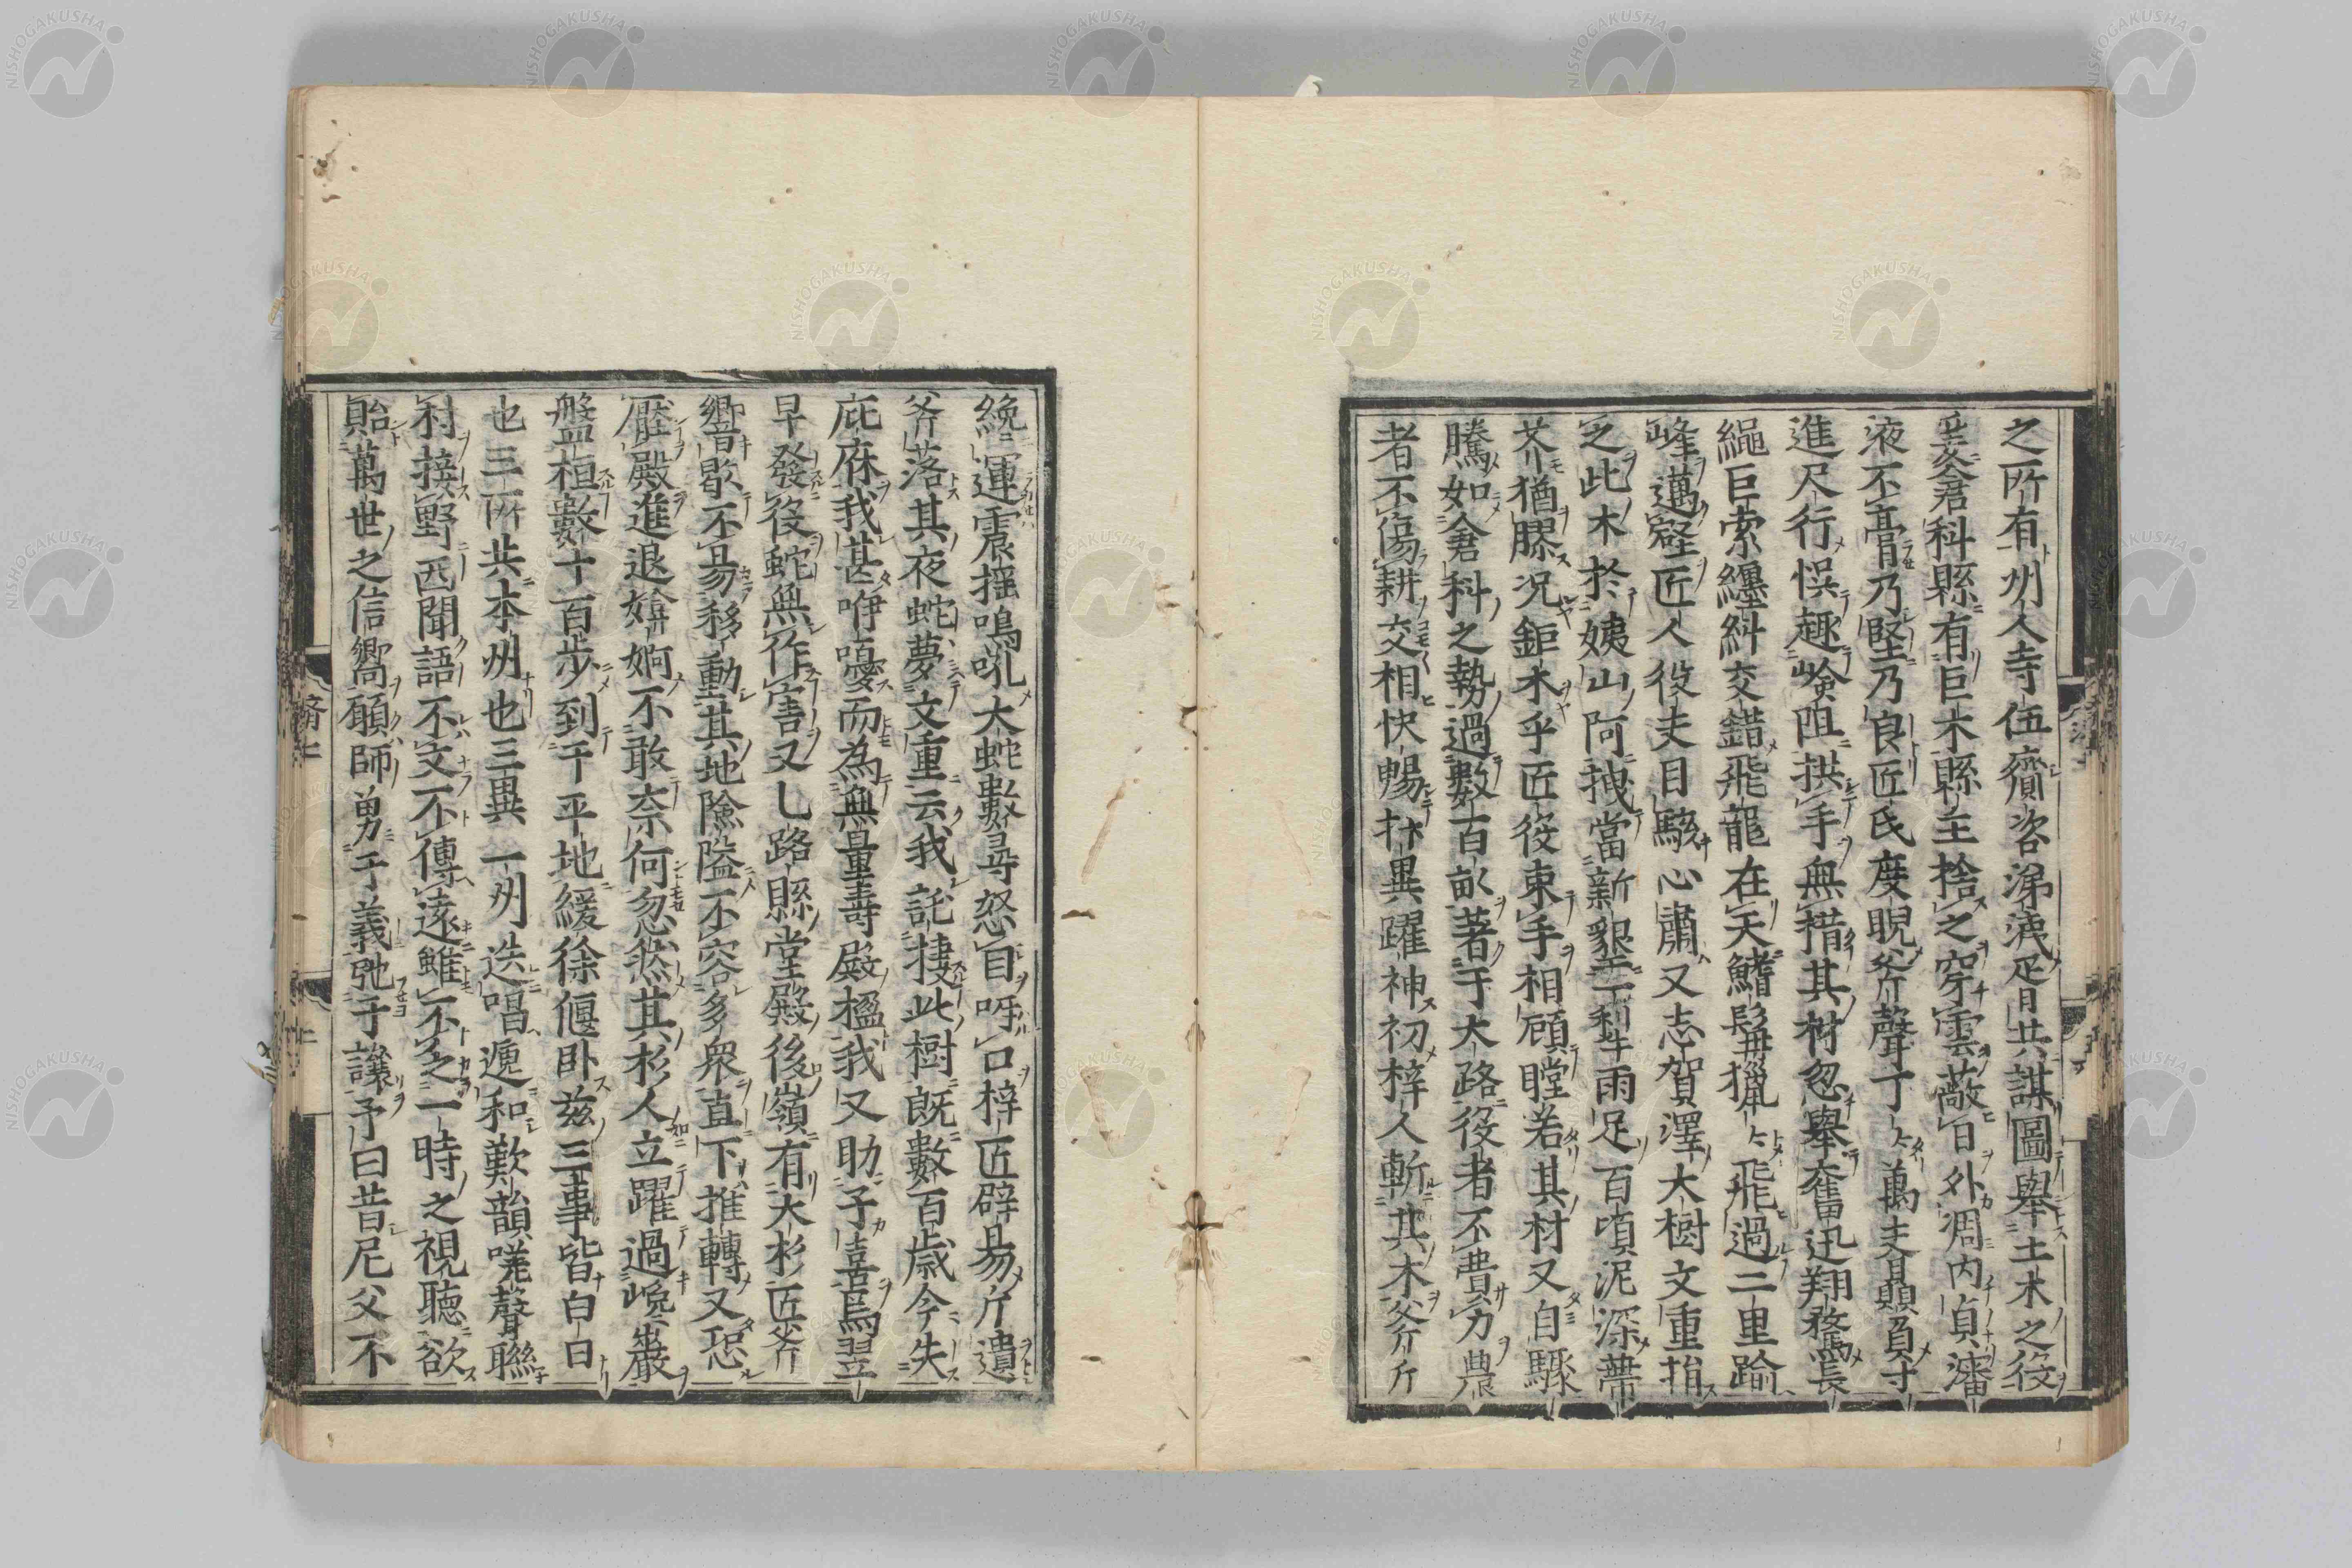 之所有州人寺伍齎咨涕洟疋月共謀圖擧土木之役
爰倉科縣有巨木縣主捨之穿雲蔽日外凋内貞瀋
液不膏乃堅乃良匠氏度睨斧聲丁々萬支贔屓寸
進尺行悞趣嶮阻拱手無措其材忽擧奮迅翔騖長
繩巨索纏糾交錯飛龍在天鰭髯獵々飛過二里踰
峰邁壑匠人役夫目駭心肅又志賀澤大樹文重指
之此木於姨山阿拽當新墾雨足百頃泥深蔕
芥猶膠况鉅木乎匠役束手相顧瞠若其材又自驟
騰如倉科之勢過數百畝著于大路役者不費力農
者不傷耕交相快暢抃異躍神初梓人斬其木斧斤
纔運震揺鳴吼大蛇數尋怒目呀口梓匠辟易斤遺
斧落其夜蛇夢文重云我託捿此樹既數百歳今失
庇庥我甚咿嚘而為無量壽殿楹我又助子喜焉翌
早發役蛇無作害又乚路縣堂殿後嶺有大杉匠斧
響歇不易移動其地險隘不容多衆直下推轉又恐
壓殿進退媕婀不敢奈何忽然其杉人立躍過巉巖
盤桓數十百歩到于平地緩徐偃卧兹三事皆白日
也三所共本州也三異一州迭唱遞和歎韻嘵聲聯
村接野匹聞語不文不傳遠雖不文一時之視聴欲
貽萬世之信嚮願師勇于義弛于讓予曰昔尼父不
NISHOGAKUSHA